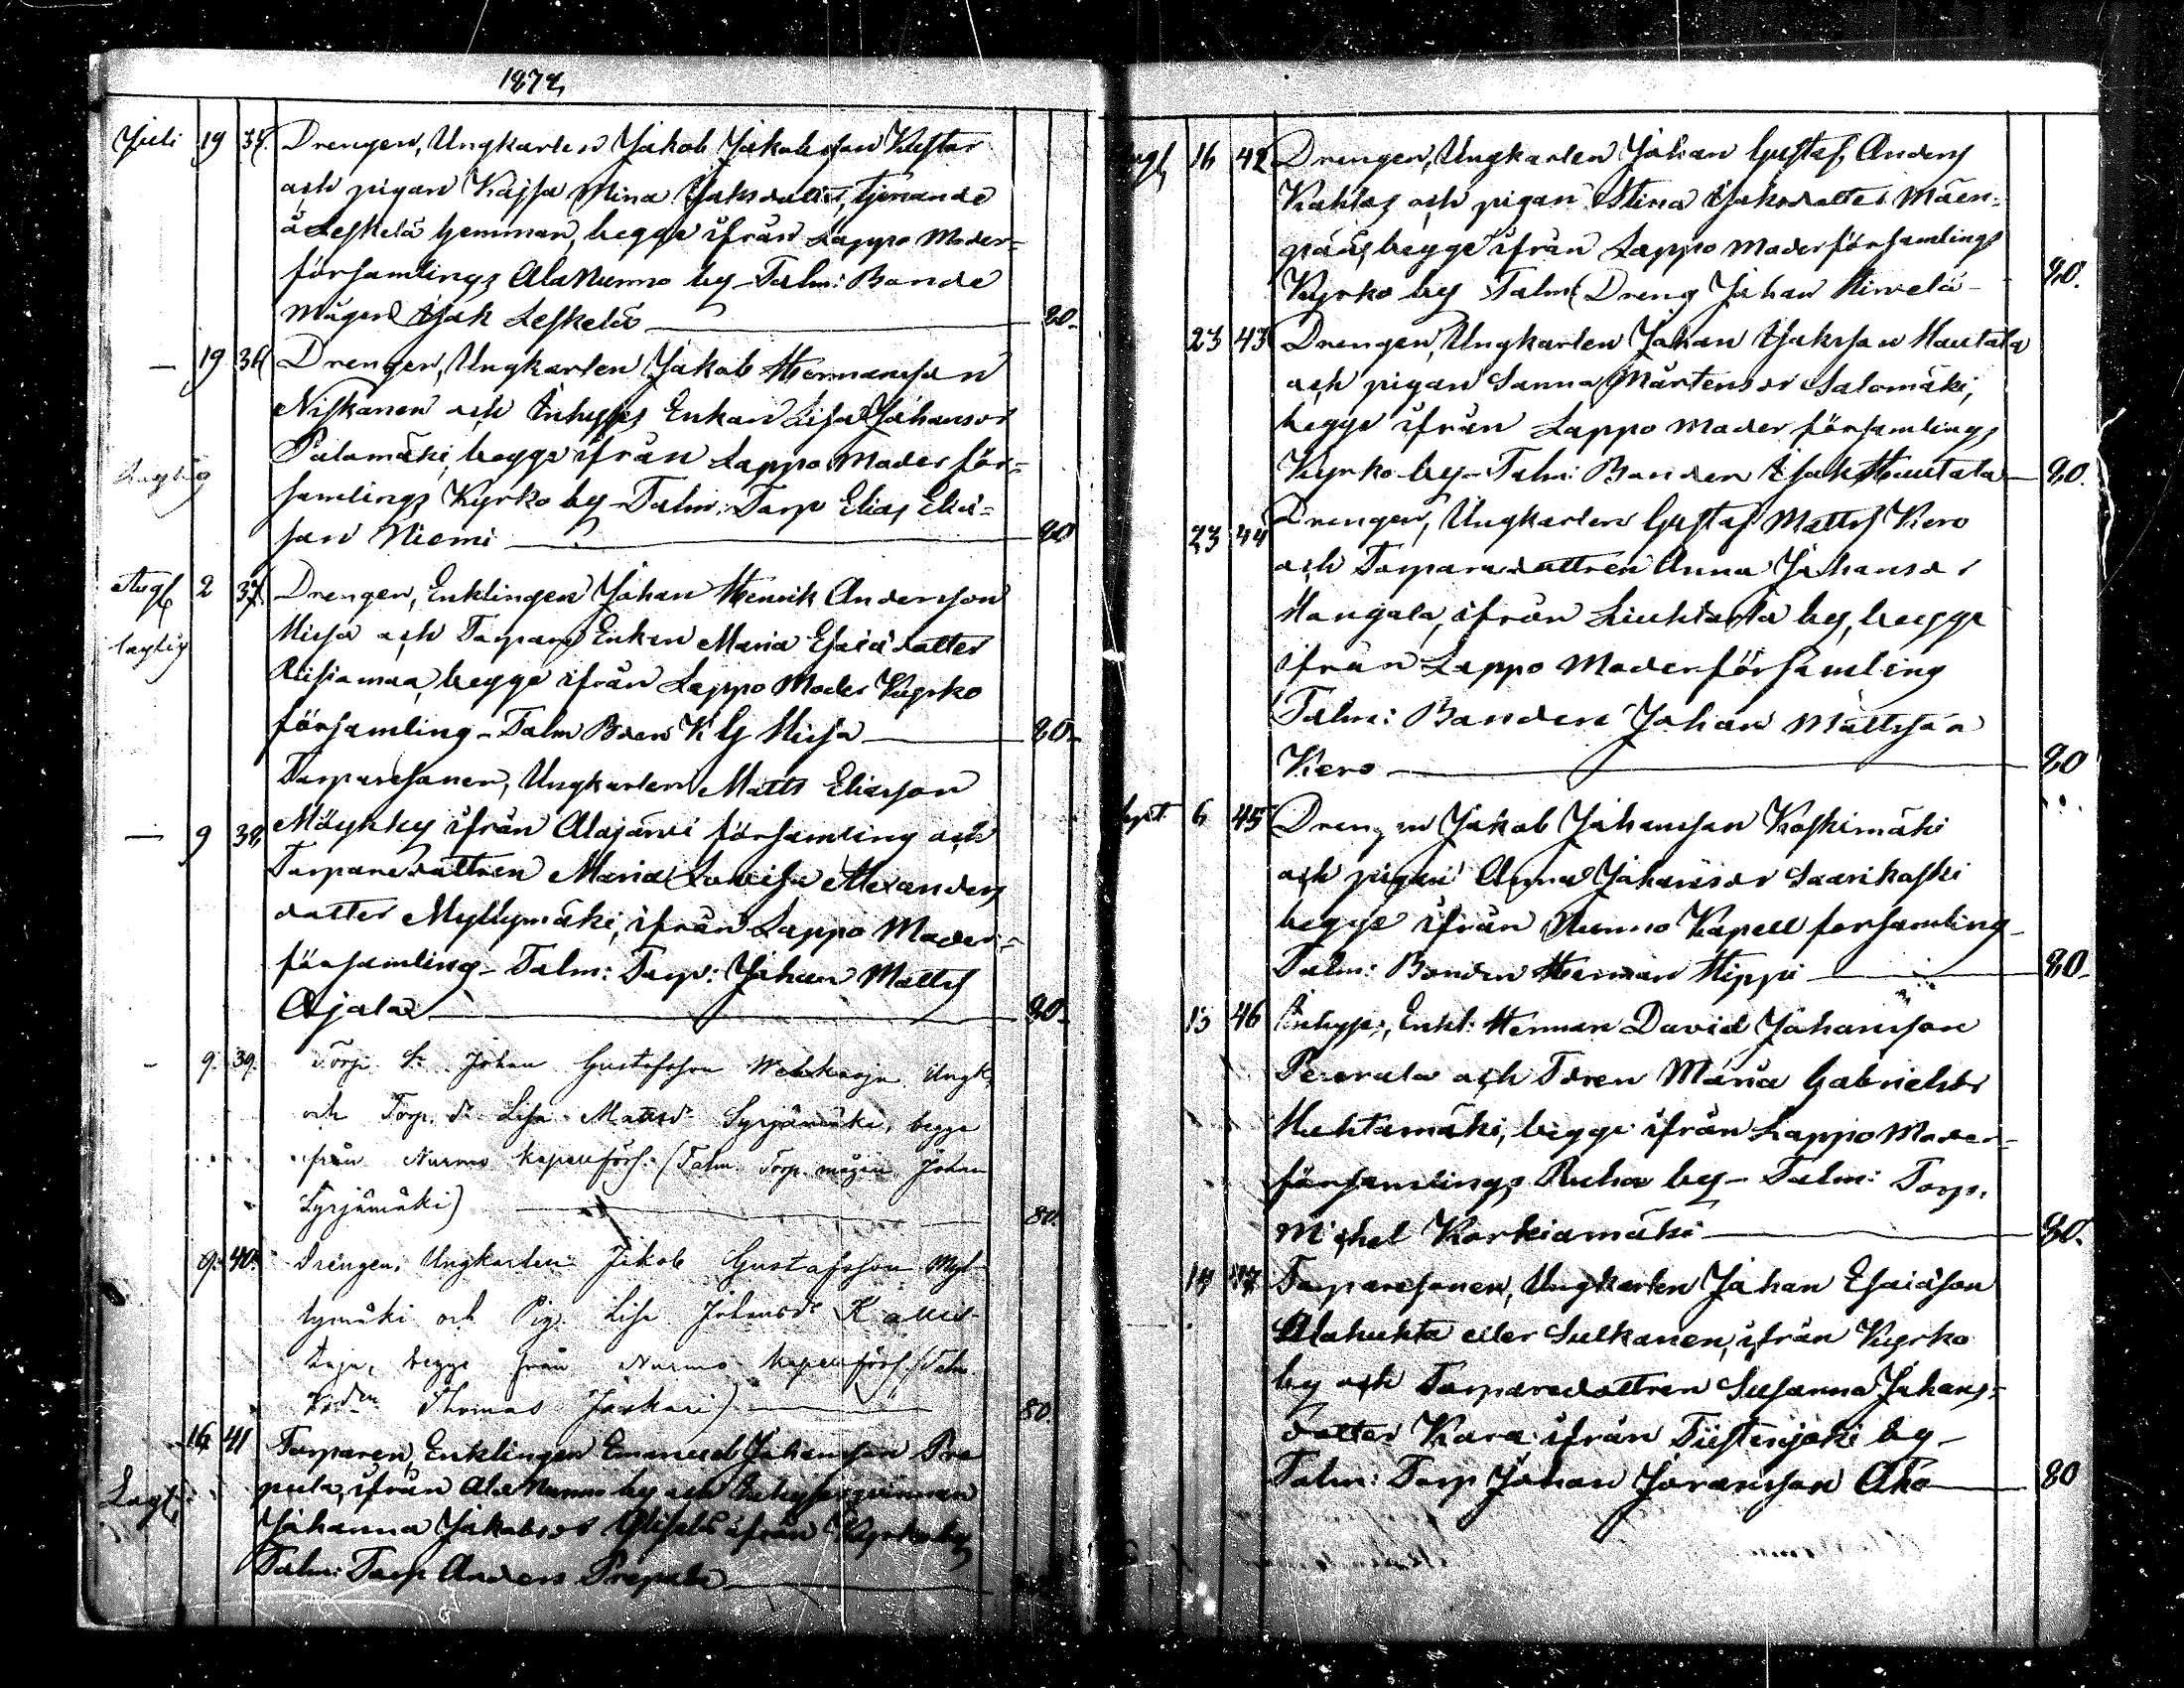 1874
Juli 19 35. Drengen, Ungkarlen Jakob Jakobsson Kustar
och pigan Kajsa Mina Isaksdotter, tjenande
å Leskelä hemman, begge ifrån Lappo Moder-
församlings AlaNurmo by - Talm: Bonde
mågen Isak Leskelä 80.
— 19 36 Drengen, Ungkarlen Jakob Hermansson
Niskanen och Inhyses Enkan Lisa Johansdr
Palomäki, begge ifrån Lappo Moder för-
samlings Kyrko by - Talm: Torp Elias Elia-
son Niemi 80
Augs 2 37 Drengen, Enklingen Johan Henrik Andersson
laglig Hissa och Torpare Enkan Maria Esaiædotter
Riisiamaa, begge ifrån Lappo Moder Kyrko
församling - Talm Bden K G Hissa 80
Torparesonen, Ungkarlen Matts Eliasson
— 9 38 Möykky ifrån Alajärvi församling och
Torparedottren Maria Lovisa Alexanders
dotter Myllymäki, ifrån Lappo Moder-
församling - Talm: Torp: Johan Matts
Ojala 80.
- 9. 39. Torp. S. Johan Gustafsson Ungk.
och Torp. dr Lisa Mattsdr Syrjämäki, begge
ifrån Nurmo kapellförs. (Talm. Torp. mågen Johan
Syrjämäki) 80.
9. 40. Drengen, Ungkarlen Jakob Gustafsson Myl-
lymäki och Pig. Lisa Johansdr
begge från Nurmo kapellförs. (Talm.
Thomas Jaskari) 80.
16 41 Torparen, Enklingen Emanuel Johansson Pre
Lagl; pula, ifrån Ala Nurmo by och Inhysesqvinnan
Johanna Jakobsdr ifrån Kyrkoby
Talm: Torp Anders Prepula
Augs 16 42 Drengen, Ungkarlen Johan Gustaf Anders
Kahtaz och pigan Stina Isaksdotter Mäen-
pää, begge ifrån Lappo moderförsamlings
Kyrko by Talm (Dreng Johan Niwelä 80.
23 43 Drengen, Ungkarlen Johan Isaksson Hautala
och pigan Sanna Mårtensdr Salomäki,
begge ifrån Lappo Moder församlings
Kyrko-by - Talm: Bonden Isak Hautala 80.
23 44 Drengen, Ungkarlen Gustaf Matts Kero
och Torparedottren Anna Johansdr
Hangala, ifrån Liuhtarla by, begge
ifrån Lappo Moderförsamling
Talm: Bonden Johan Mattsson
Kero 80
Sept 6 45 Drengen Jakob Johansson Koskimäki
och pigan Anna Johansdr Saarikoski
begge ifrån Nurmo Kapell forsamling
Talm: Bonden Herman Hippi 80.
13 46 Inhyses, Enkl: Herman David Johansson
Perorala och Tdren Maria Gabrielsdr
Huhtamäki, begge ifrån Lappo Moder-
församlings Ruha by - Talm: Torp.
Michel Korkiamäki 80.
14 47 Torparesonen, Ungkarlen Johan Esaiason
Alahuhta eller Sulkanen, ifrån Kyrko
by och Torparedottren Susanna Johans-
dotter Kara ifrån Tiistenjoki by -
Talm: Torp Johan Joransson Aho 80